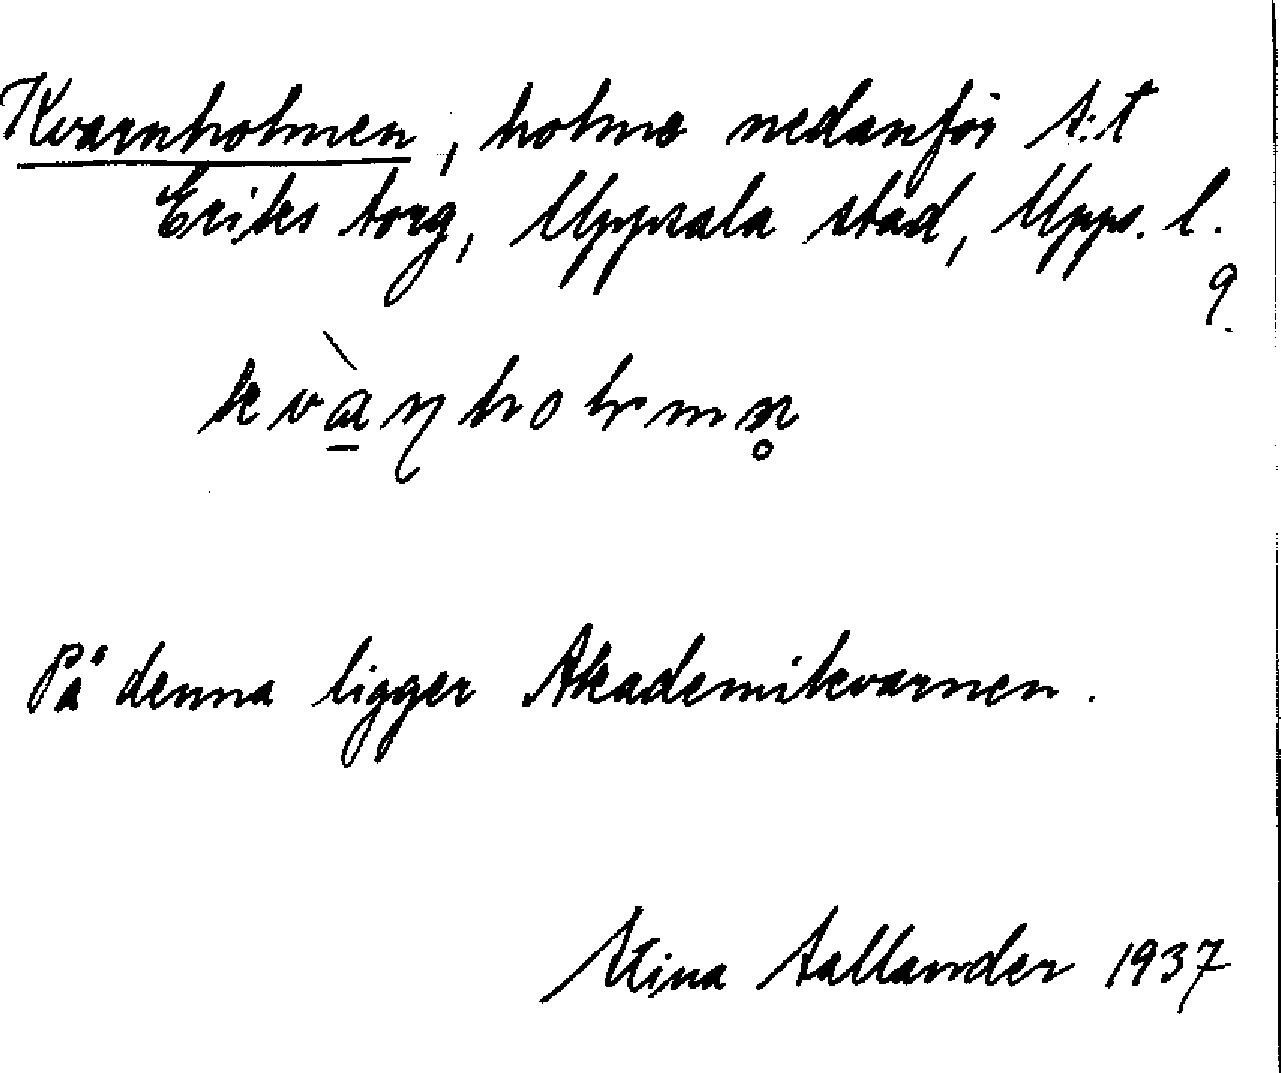 Kvarnholmen, holme nedanför S:t
Eriks torg, Uppsala stad, Upps. l.
På denna ligger Akademikvarnen.
Sallander 1937